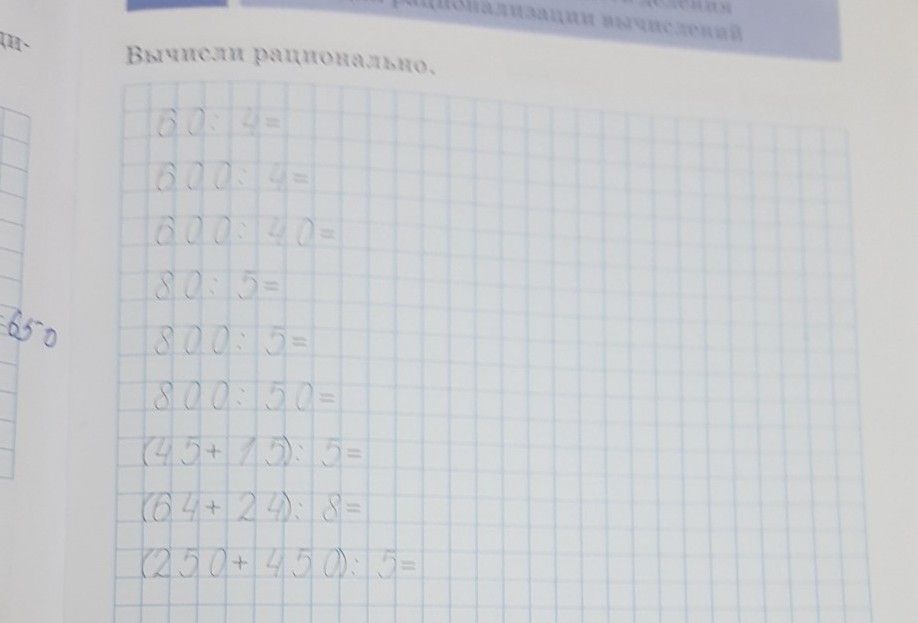 рационализации вычислений
ци-
Вычисли рационально.
60: 4=
600: 4=
600: 40=
80: 5=
650
800: 5=
800: 50=
(45+ 15): 5=
(64+ 24): 8=
(250+ 450): 5=